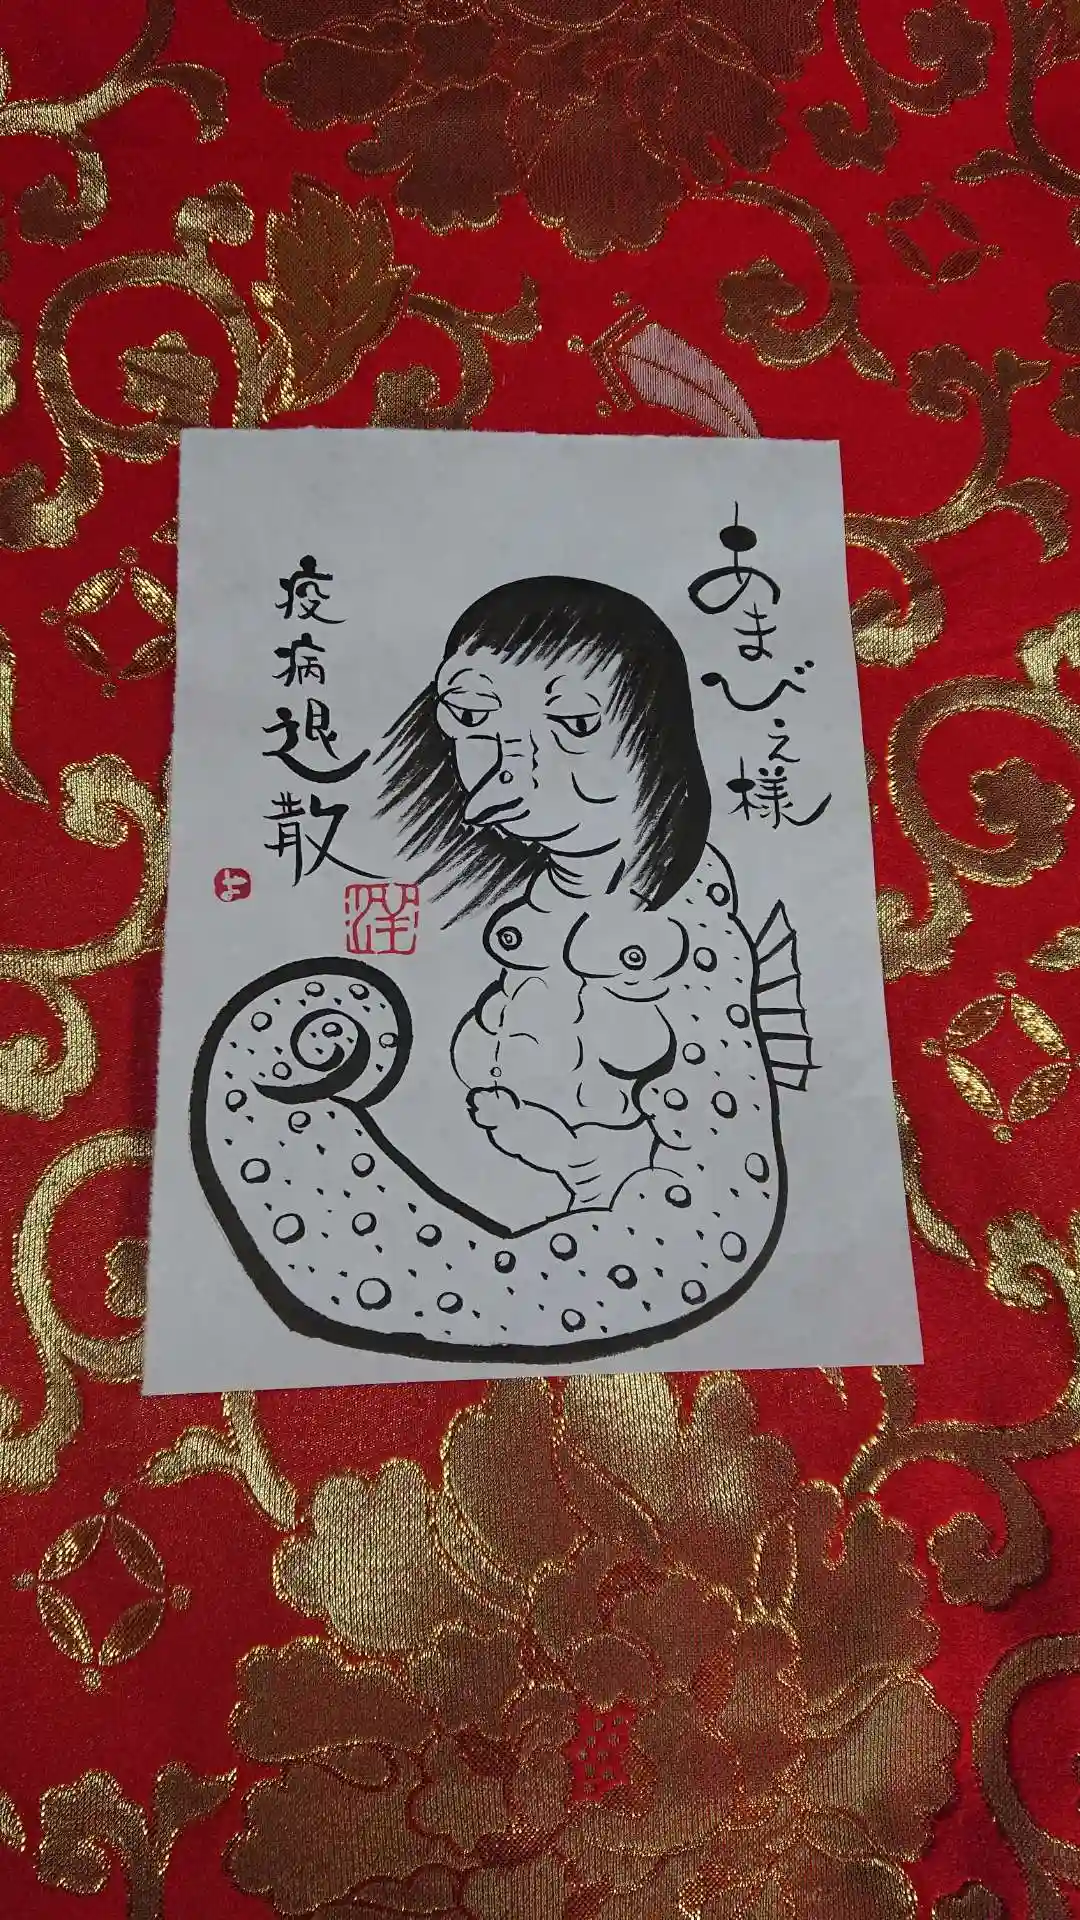 あまびえ様
疫病退散